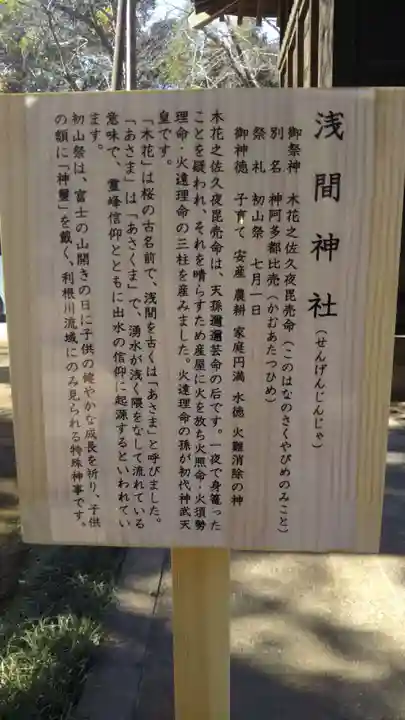 浅間神社(せんげんじんじゃ)
御祭神 木花之佐久夜毘売命(このはなのさくやびめのみこと)
別名 神阿多都比売(かむあたつひめ)
祭礼 初山祭 七月一日
御神徳 子育て 安産 農耕 家庭円満 水徳 火難消除の神
木花之佐久夜毘売命は、天孫邇邇芸命の后です。一夜で身籠った
ことを疑われ、それを晴らすため産屋に火を放ち火照命・火須勢
理命・火遠理命の三柱を産みました。火遠理命の孫が初代神武天
皇です。
「木花」は桜の古名前で、浅間を古くは「あさま」と呼びました。
「あさま」は「あさくま」で、湧水が浅く隈をなして流れている
意味で、霊峰信仰とともに出水の信仰に起源するといわれてい
ます。
初山祭は、富士の山開きの日に子供の健やかな成長を祈り、子供
の額に「神璽」を戴く、利根川流域にのみ見られる特殊神事です。